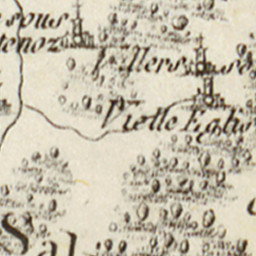 sous
tenoz
Villers se
Vielle Eglis
Sal